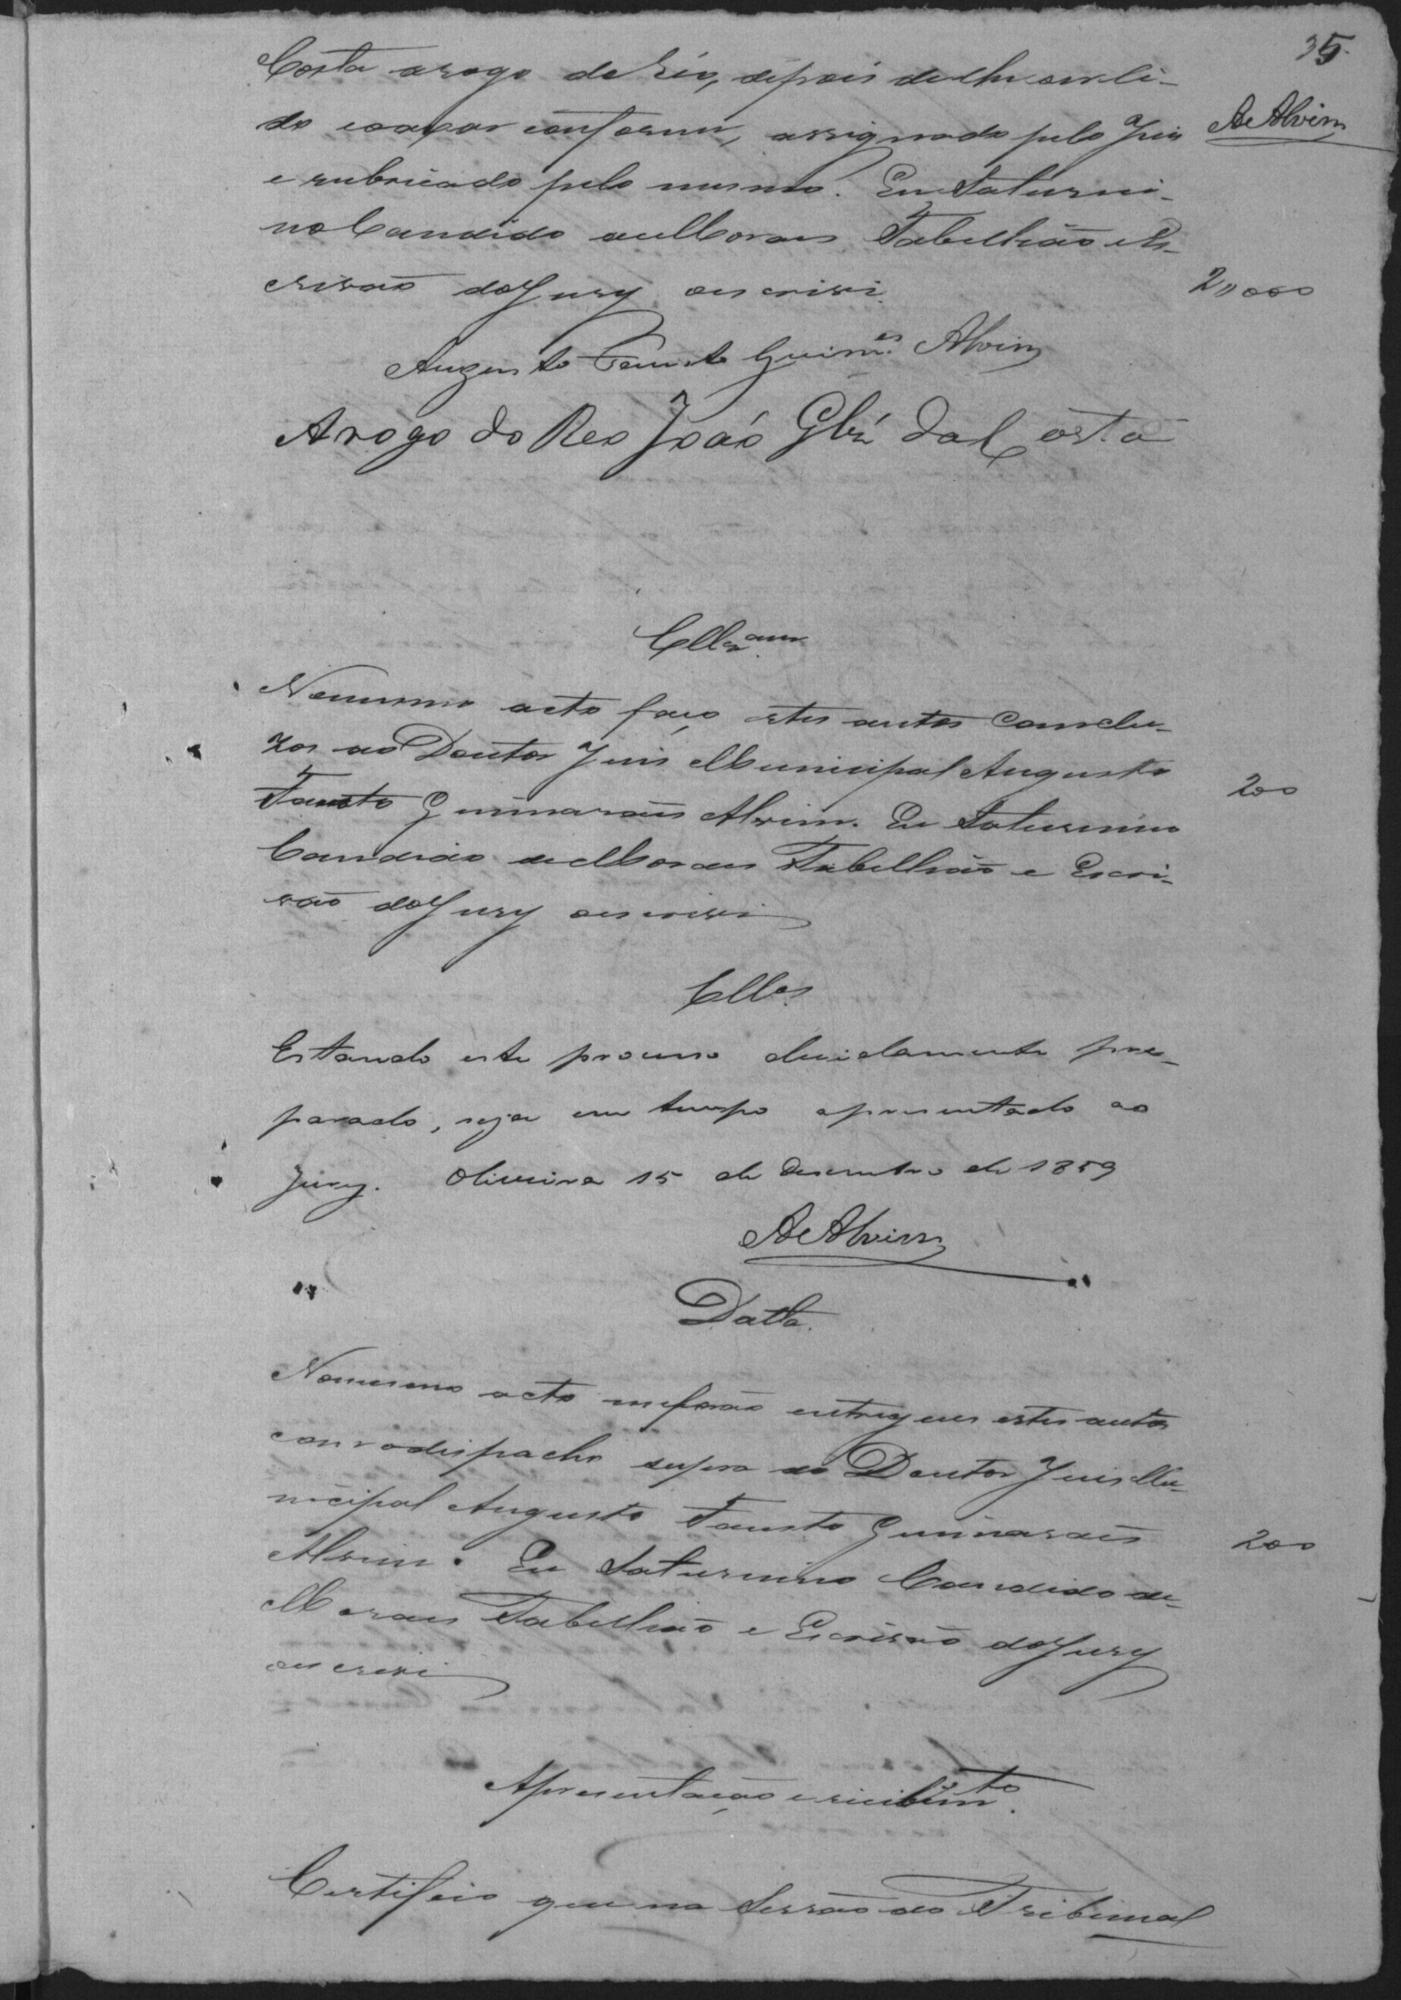 35
Costa arogo do Réo, depois de lhe ser li-
do e o axar conforme, assignado pelo Juis
AeAlvim
e rubricado pelo mesmo. Eu Saturni-
no Candido de Moraes Tabellião e Es-
crivão do Jury o escrivi
2"000
Augusto Fausto Guim.es Alvim
Arogo do Reo João Glz' da Costa
Cllz.am
No mesmo acto faço estes autos conclu-
zos ao Doutor Juis Municipal Augusto
Fausto Guimarães Alvim. Eu Saturnino
200
Candido de Moraes Tabellião e Escri-
vão do Jury o escrivi
Cllos
Estando este processo devidamente pre-
parado, seja em tempo apresentado ao
Jury. Oliveira 15 de Desembro de 1859
AeAlvim
Datta.
No mesmo acto me forão entregues estes autos
com o despacho supra do Doutor Juis Mu-
nicipal Augusto Fausto Guimarães
Alvim. Eu Saturnino Candido de
200
Moraes Tabellião e Escrivão do Jury
o escrivi
Apresentação e recibim.to
Certifico que na Sessão do Tribunal